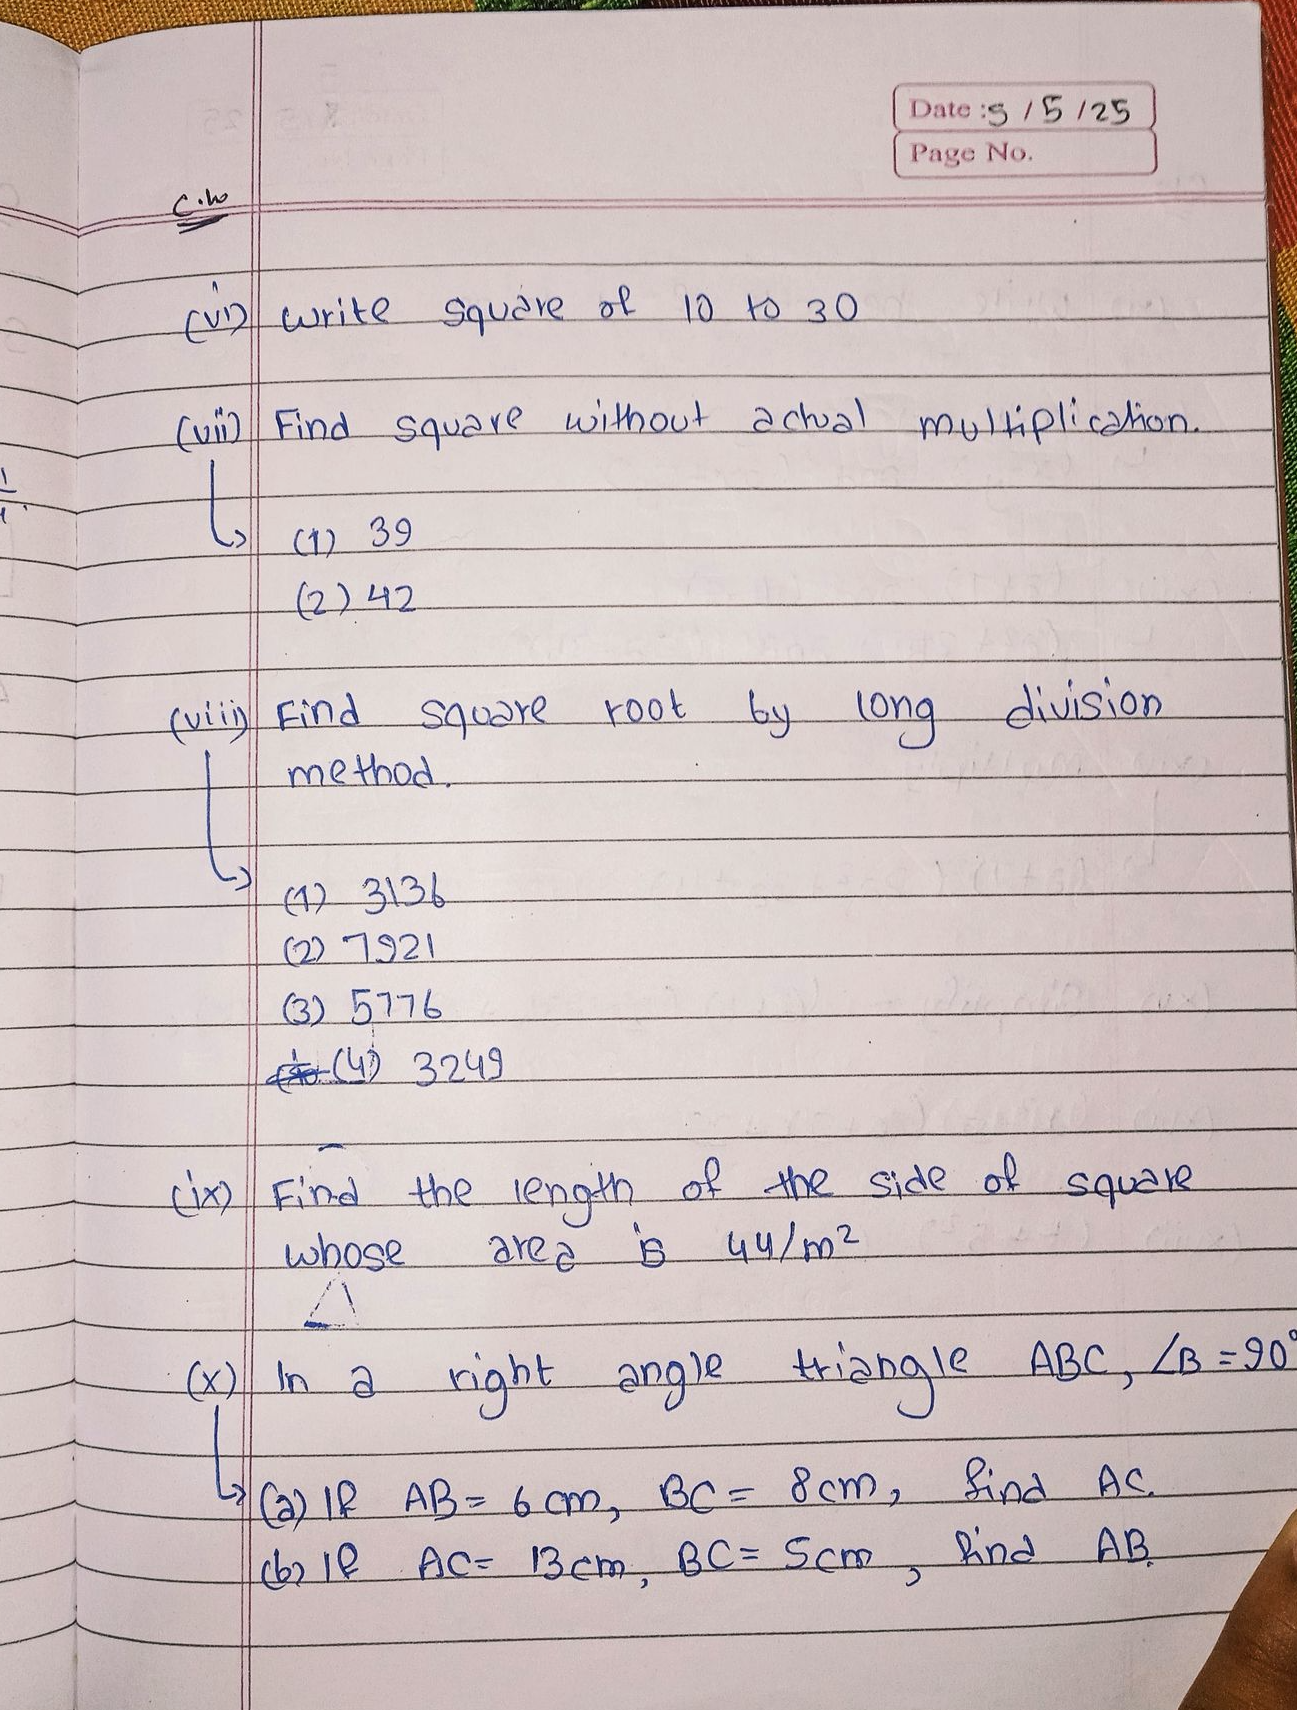 Date : 5 / 5 / 25
Page No.
C.W
(vi) Write square of 10 to 30
(vii) Find square without actual multiplication.
(1) 39
(2) 42
(viii) Find square root by long division
method.
(1) 3136
(2) 7921
(3) 5776
(4) 3249
(ix) Find the length of the side of square
whose area is 44/m²
(x) In a right angle triangle ABC, ∠B = 90°
(a) If AB = 6 cm, BC = 8cm, find AC.
(b) If AC = 13cm, BC = 5cm, find AB.